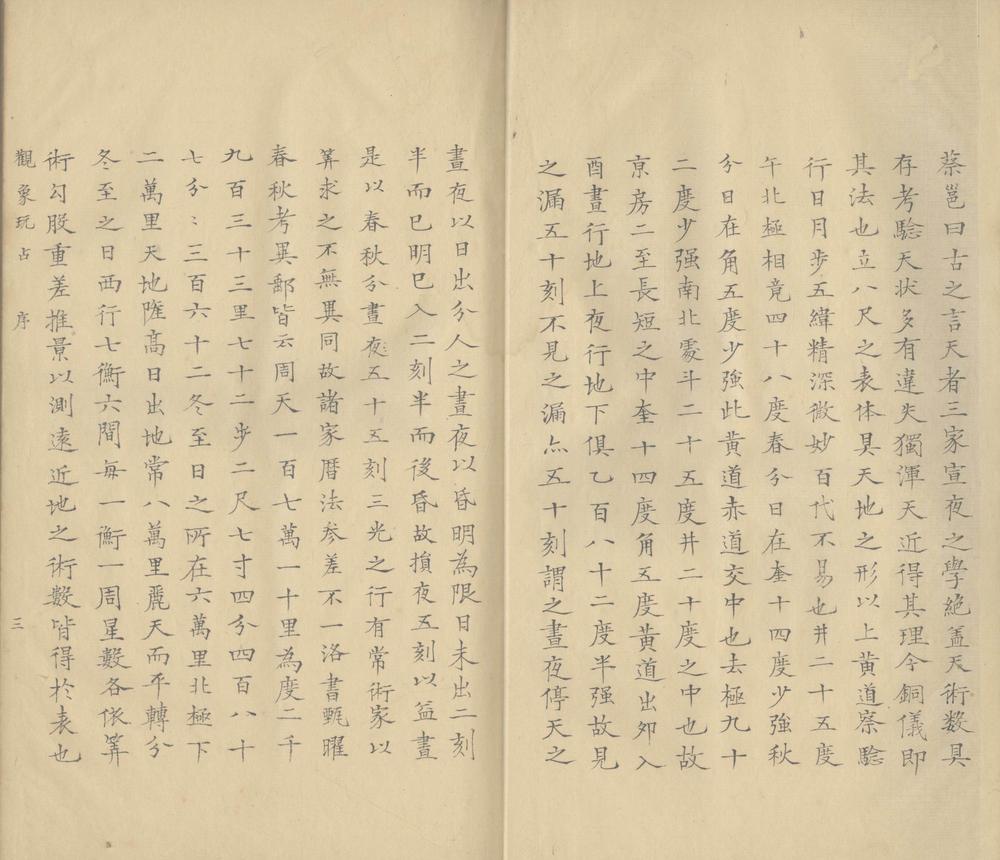 蔡邕曰古之言天者三家宣夜之學絶盖天術数具
存考驗天状多有違失獨渾天近得其理今銅儀即
其法也立八尺之表体具天地之形以上黄道察驗
行日月步五緯精深微妙百代不易也井二十五度
午北極相竟四十八度春分日在奎十四度少強秋
分日在角五度少強此黄道赤道交中也去極九十
二度少强南北䖏斗二十五度井二十度之中也故
京房二至長短之中奎十四度角五度黄道出夘入
酉晝行地上夜行地下俱乙百八十二度半强故見
之漏五十刻不見之漏亦五十刻謂之晝夜停天之
晝夜以日出分人之晝夜以昏明為限日未出二刻
半而已明已入二刻半而後昏故損夜五刻以益晝
是以春秋分晝夜五十五刻三光之行有常術家以
筭求之不無異同故諸家曆法参差不一洛書甄曜
春秋考異郵皆云周天一百七萬一十里為度二千
九百三十三里七十二步二尺七寸四分四百八十
七分〻三百六十二冬至日之所在六萬里北極下
二萬里天地隆高日出地常八萬里麗天而平轉分
冬至之日西行七衡六間每一衡一周星數各依筭
術勾股重差推景以測遠近地之術數皆得於表也
觀象玩占 序 三